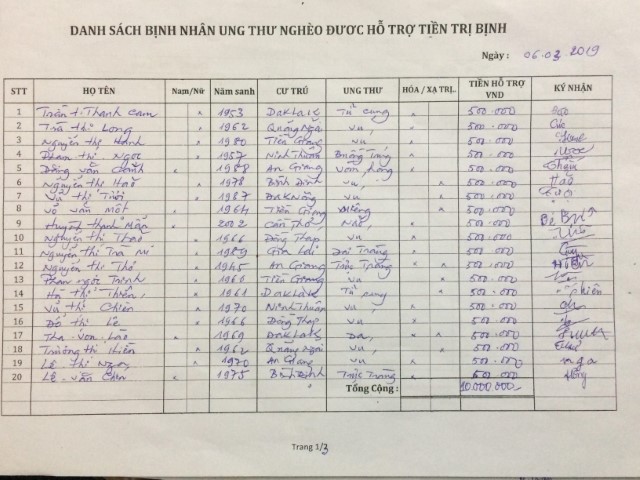 DANH SÁCH BỊNH NHÂN UNG THƯ NGHÈO ĐƯƠC HỖ TRỢ TIỀN TRỊ BỊNH
Ngày : 06.03 2019
STT HỌ TÊN Nạm/Nữ Năm sanh CƯ TRÚ UNG THƯ HÓA / XẠ TRỊ.. TIỀN HỖ TRỢ VND KÝ NHẬN
1 Trần t. Thanh Cam x 1953 DakLak Tử cung x 500.000
2 Trà thị Long x 1962 Quảng Ngãi vú, x 500.000 Cúc
3 Nguyễn thị Hạnh x 1980 Tiền Giang vú, x 500.000
4 Phạm thị Ngọc x 1957 Ninh Thuận Buồng trứng x 500.000 Ngọc
5 Đặng văn Chánh x 1958 An Giang Vòm họng x 500.000
6 Nguyễn thị Hào x 1978 Bình Định vú, x 500.000 Hào
7 Vũ thị Tươi x 1987 DakNông vú, x 500.000
8 Võ văn Một x 1964 Tiền Giang Miệng x x 500.000
9 Huỳnh Thanh Mẫn x 2002 Cần Thơ x 500.000
10 Nguyễn thị Thao x 1966 Đồng Tháp vú x 500.000
11 Nguyễn thị Trà Mi x 1989 Gia Lai Đại Tràng x 500.000
12 Nguyễn thị Thơ x 1945 An Giang Trực Tràng x x 500.000
13 Phạm ngọc Thịnh x 1960 Tiền Giang vú x 500.000
14 Hồ thị Thiên x 1961 DakLak Tử cung x x 500.000
15 Vũ thị Chiên x 1970 Ninh Thuận vú x 500.000
16 Đỗ thị Lê x 1966 Đồng Tháp vú x 500.000
17 x 1969 DakLak Da, x x 500.000
18 Trương thị Hiền x 1962 Quảng Ngãi vú x x 500.000
19 Lê thị Nga x 1970 An Giang vú x 500.000 nga
20 Lê văn x 1975 Bình Định Trực Tràng x 500.000
Tổng Cộng : 10.000.000
Trang 1/3